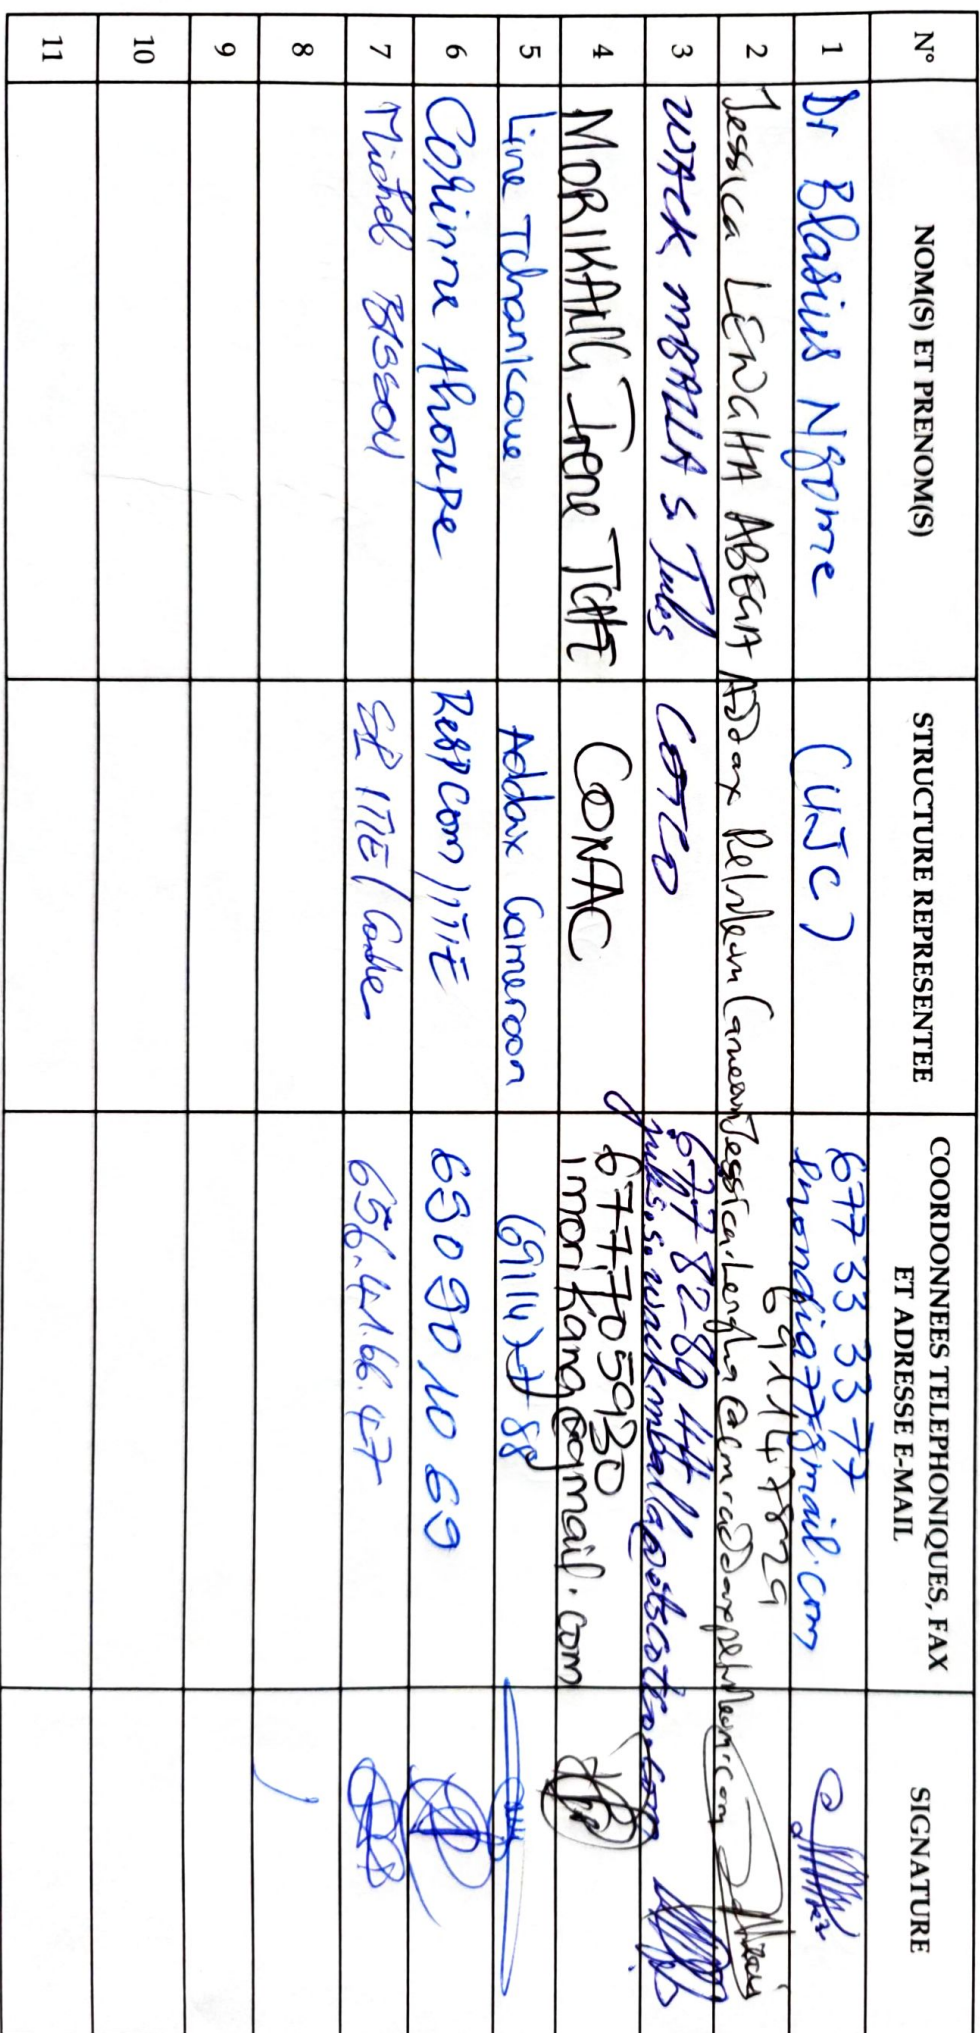 N° NOM(S) ET PRENOM(S) STRUCTURE REPRESENTEE COORDONNEES TELEPHONIQUES, FAX
ET ADRESSE E-MAIL SIGNATURE
1 Dr Blasius Ngome (UJC) 677 33 33 77
@gmail.com
2 Jessica LENGHA ABEGA Addax Petroleum Cameroon 691147829
3 WACK MBALLA S Jules COTCO 677 82-89 44
4 MORIKANG Irene TCHE CONAC 677705930
imorikang@gmail.com
5 Line Tchankoue Addax Cameroon
6 Corinne Ahoupe RespCom/ITIE 690 90 10 69
7 Michel BISSOU SP ITIE/ 656.41.66.47
8
9
10
11